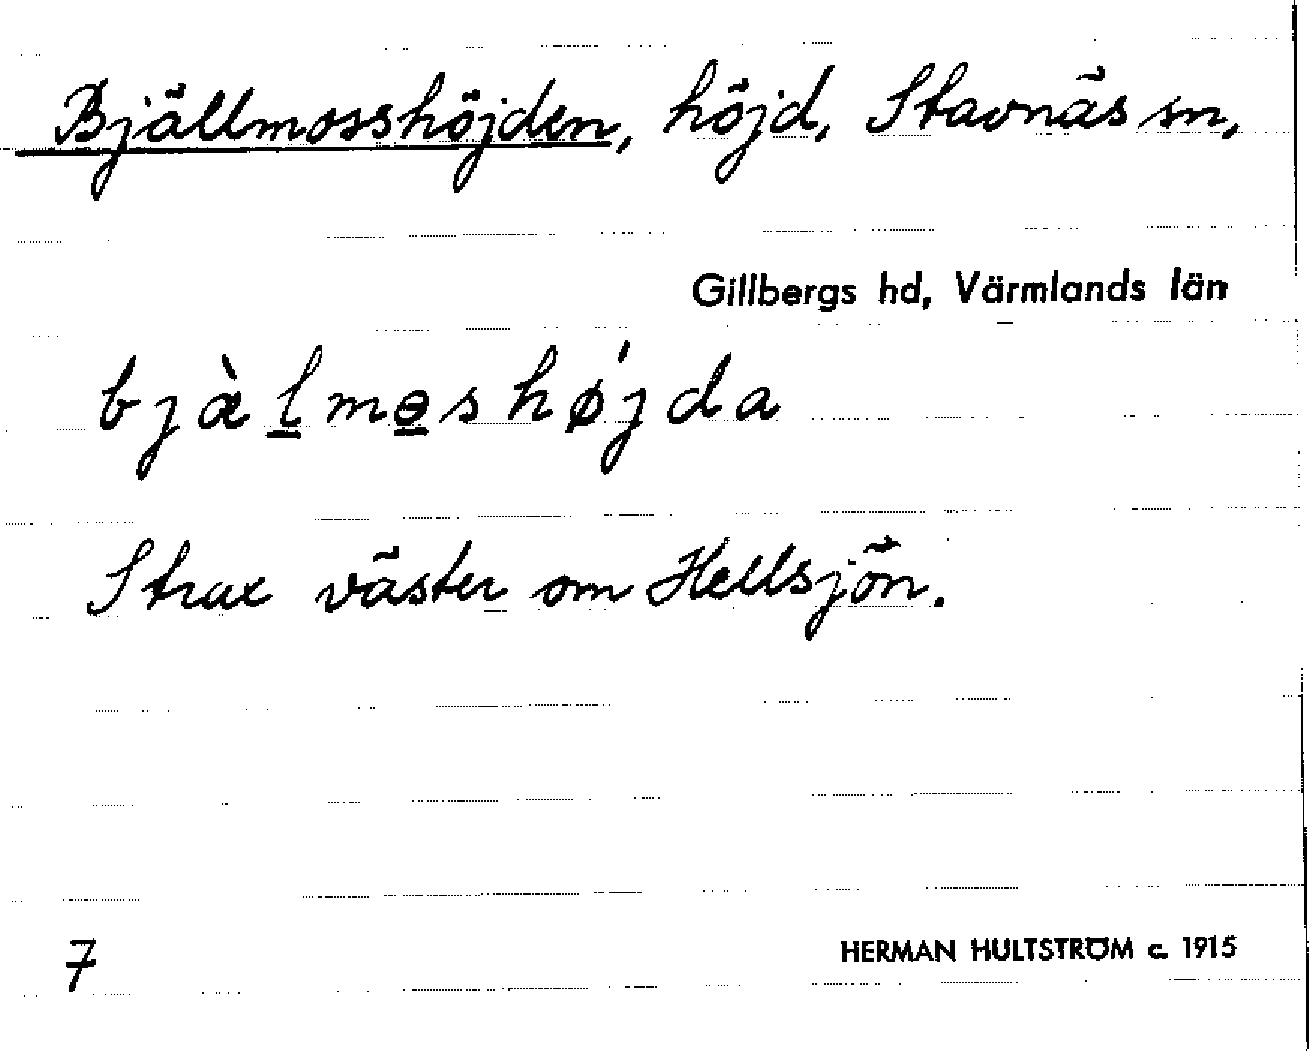 Bjällmosshöjden, höjd, Stavnäs sn,
Gillbergs hd, Värmlands län
bjæ̀l̲mɵ̲shǿjda
Strax väster om Hellsjön.
7
HERMAN HULTSTRÖM c. 1915